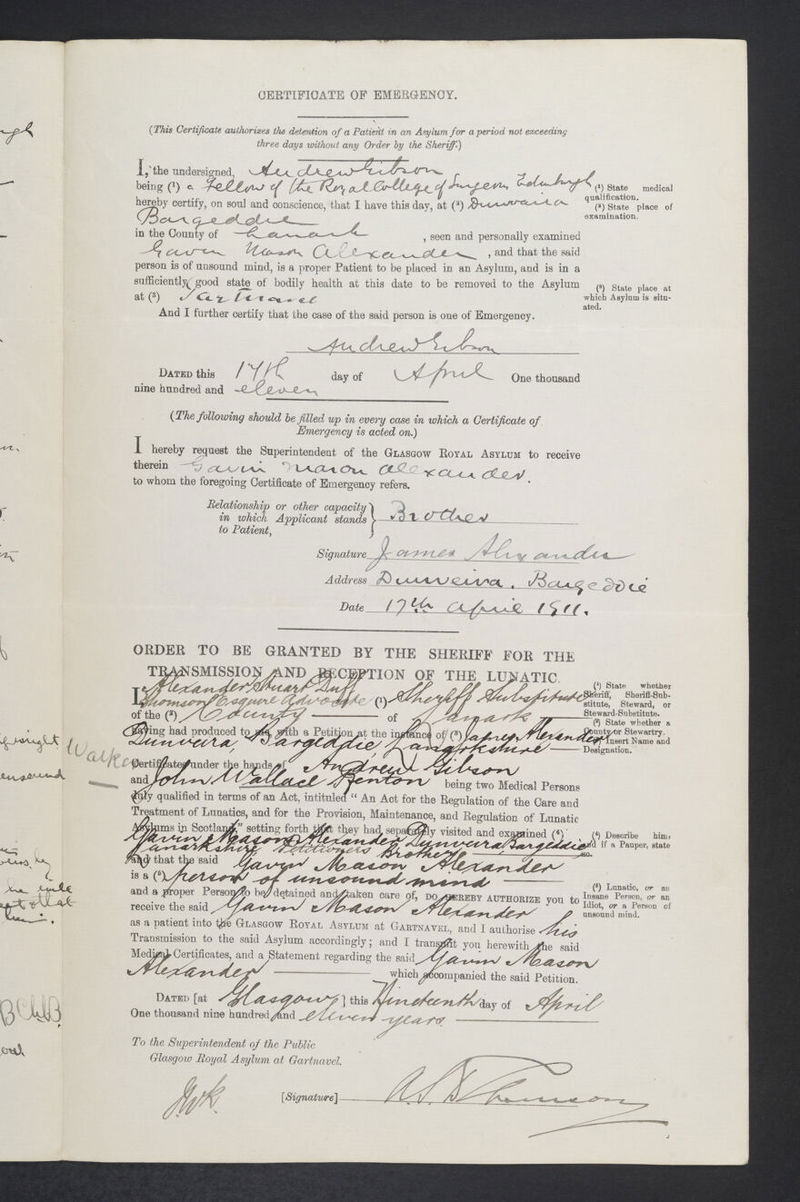 CERTIFICATE OF EMERGENCY.
(This Certificate authorizes the detention of a Patient in an Asylum for a period not exceeding
three days without any Order by the Sheriff.)
I, the undersigned, Andrew Gibson
being (¹) a Fellow of the Royal College of Surgeons Edinburgh
(¹) State medical
qualification.
hereby certify, on soul and conscience, that I have this day, at (²) Dunvaira
(²) State place of
examination.
Bargeddie
in the County of Lanark , seen and personally examined
Gavin Mason Alexander , and that the said
person is of unsound mind, is a proper Patient to be placed in an Asylum, and is in a
sufficiently good state of bodily health at this date to be removed to the Asylum
at (³) Gartnavel
(³) State place at
which Asylum is situ-
ated.
And I further certify that the case of the said person is one of Emergency.
Andrew Gibson
DATED this 17th day of April One thousand
nine hundred and eleven
(The following should be filled up in every case in which a Certificate of
Emergency is acted on.)
I hereby request the Superintendent of the GLASGOW ROYAL ASYLUM to receive
therein Gavin Mason Alexander.
to whom the foregoing Certificate of Emergency refers.
Relationship or other capacity
in which Applicant stands } Brother
to Patient,
Signature James Alexander
Address Dunveira. Bargeddie
Date 17th April 1911.
ORDER TO BE GRANTED BY THE SHERIFF FOR THE
TRANSMISSION AND RECEPTION OF THE LUNATIC.
I, Alexander Stuart Duff
Thomson Esquire Advocate (¹) Sheriff Substitute
(¹) State whether
Sheriff, Sheriff-Sub-
stitute, Steward, or
Steward-Substitute.
of the (²) County of Lanark
(²) State whether a
County or Stewartry.
having had produced to me with a Petition at the instance of (³) James Alexander
(³) Insert Name and
Designation.
Dunveira, Bargeddie Lanarkshire
Certificates under the hands of Andrew Gibson
Walker
and John Wallace Fenton being two Medical Persons
duly qualified in terms of an Act, intituled "An Act for the Regulation of the Care and
Treatment of Lunatics, and for the Provision, Maintenance, and Regulation of Lunatic
Asylums in Scotland," setting forth that they had separately visited and examined (⁴)
(⁴) Describe him,
and if a Pauper, state
so.
Gavin Mason Alexander Dunveira Bargeddie
Lanarkshire Petitioners Brother
and that the said Gavin Mason Alexander
is a (⁵) person of unsound mind
(⁵) Lunatic, or an
Insane Person, or an
Idiot, or a Person of
unsound mind.
and a proper Person to be detained and taken care of, DO HEREBY AUTHORIZE you to
receive the said Gavin Mason Alexander
as a patient into the GLASGOW ROYAL ASYLUM AT GARTNAVEL, and I authorise his
Transmission to the said Asylum accordingly; and I transmit you herewith the said
Medical Certificates, and a Statement regarding the said Gavin Mason
Alexander which accompanied the said Petition.
DATED [at Glasgow] this Nineteenth day of April
One thousand nine hundred and eleven years
To the Superintendent of the Public
Glasgow Royal Asylum at Gartnavel.
[Signature] A. S. D. Thomson